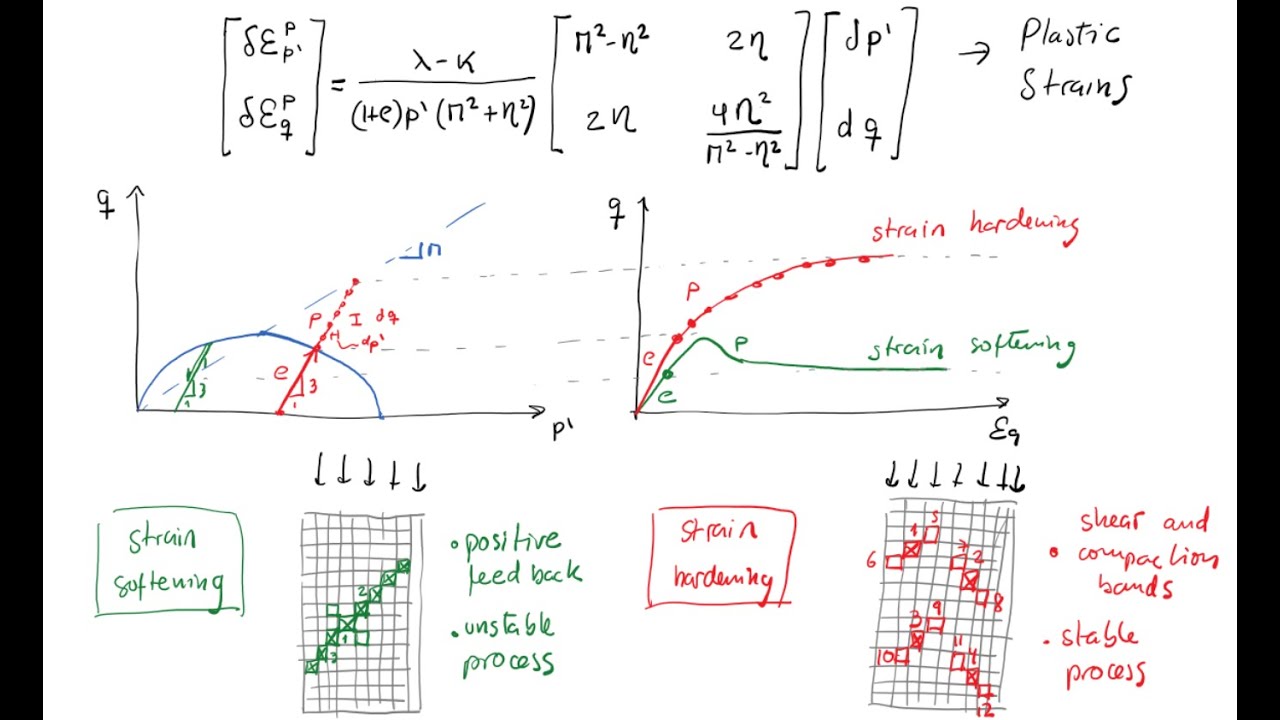 [δε_p'^p  δε_q^p] = (λ-κ)/((1+e)p'(M²+η²)) [M²-η²  2η; 2η  4η²/(M²-η²)] [dp'; dq] → Plastic Strains
q
M
strain hardening
P
I dq
dp'
e
3
1
3
1
p'
q
strain hardening
P
e
P
strain softening
e
εq
strain
softening
2
1
3
• positive
feed back
• unstable
process
strain
hardening
5
1
6
7
2
8
9
3
10
11
4
12
shear and
• compaction
bands
• stable
process